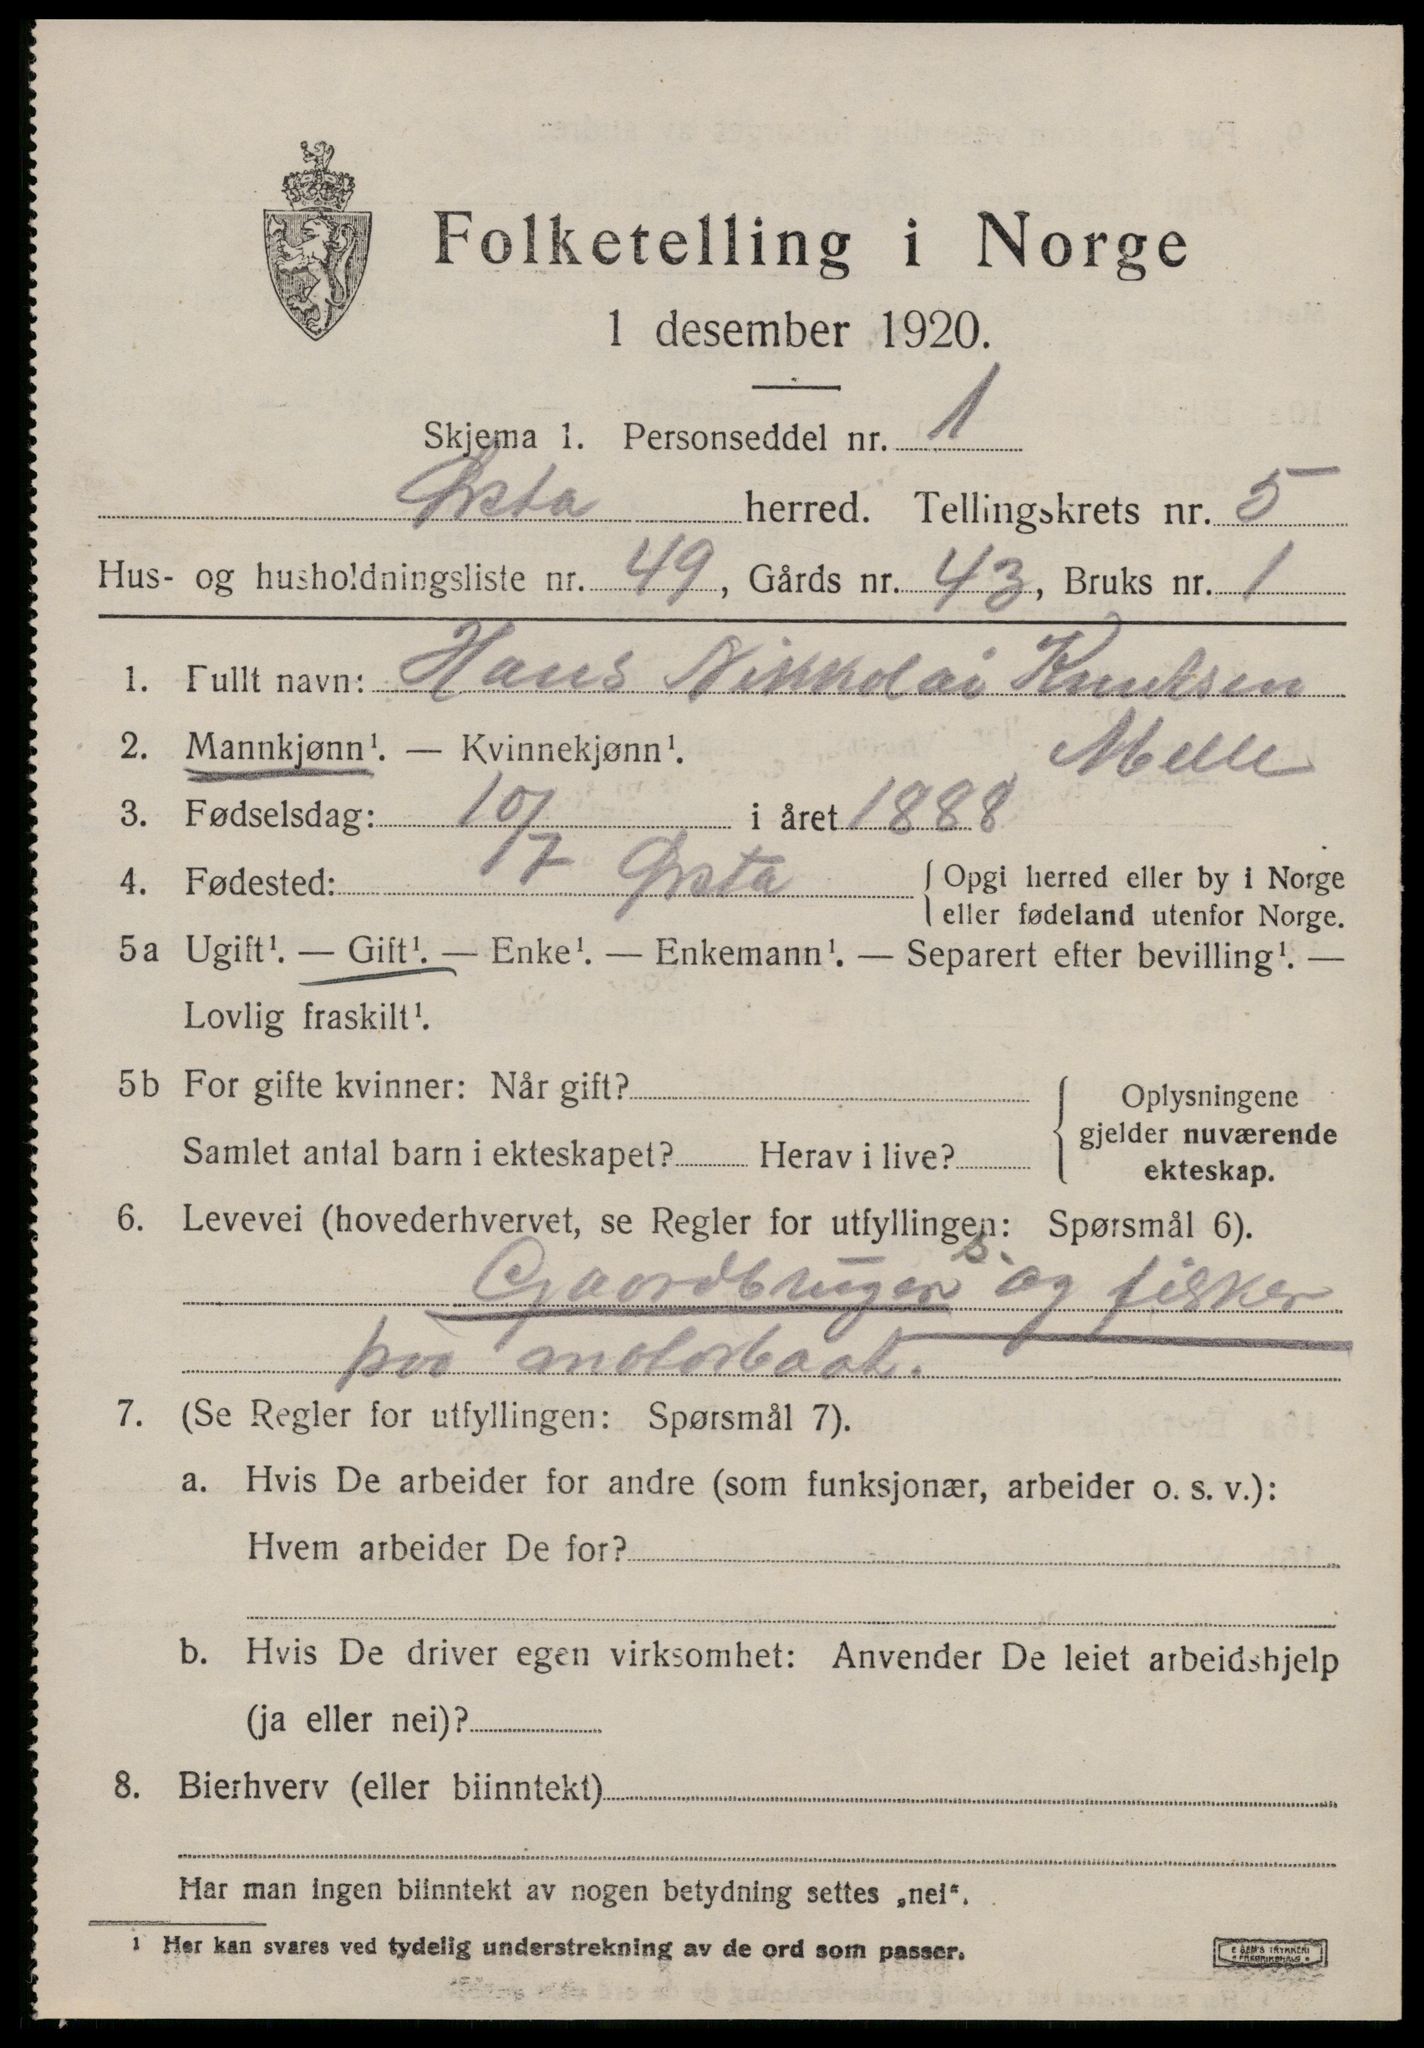 Folketelling i Norge
1 desember 1920.
Skjema 1. Personseddel nr. 1
Ørsta herred. Tellingskrets nr. 5
Hus- og husholdningsliste nr. 49, Gårds nr. 43, Bruks nr. 1
1. Fullt navn: Hans Nikkolai Knutsen
Melle
2. Mannkjønn¹. — Kvinnekjønn¹.
3. Fødselsdag: 10/7 i året 1888
4. Fødested: Ørsta { Opgi herred eller by i Norge
eller fødeland utenfor Norge.
5a Ugift¹. — Gift¹. — Enke¹. — Enkemann¹. — Separert efter bevilling¹. —
Lovlig fraskilt¹.
5b For gifte kvinner: Når gift?
Samlet antal barn i ekteskapet? Herav i live?
{ Oplysningene
gjelder nuværende
ekteskap.
6. Levevei (hovederhvervet, se Regler for utfyllingen: Spørsmål 6).
s.
Gaardbruger og fisker
paa motorbaat.
7. (Se Regler for utfyllingen: Spørsmål 7).
a. Hvis De arbeider for andre (som funksjonær, arbeider o. s. v.):
Hvem arbeider De for?
b. Hvis De driver egen virksomhet: Anvender De leiet arbeidshjelp
(ja eller nei)?
8. Bierhverv (eller biinntekt)
Har man ingen biinntekt av nogen betydning settes „nei“.
1 Her kan svares ved tydelig understrekning av de ord som passer.
E SEM'S TRYKKERI
FREDRIKSHALD